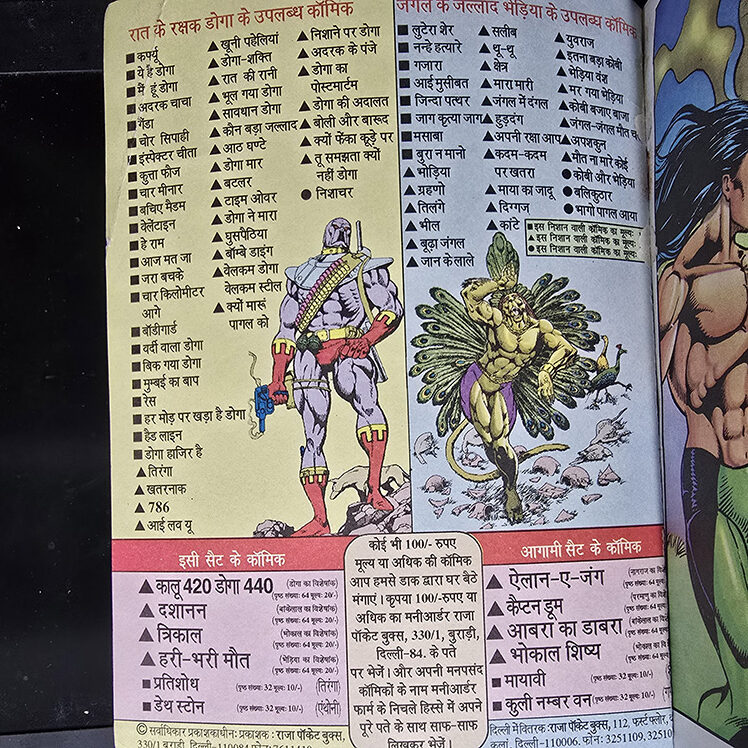 रात के रक्षक डोगा के उपलब्ध कॉमिक
■ कर्फ्यू
■ ये है डोगा
■ मैं हूं डोगा
■ अदरक चाचा
■ गैंडा
■ चोर सिपाही
■ इंस्पेक्टर चीता
■ कुत्ता फौज
■ चार मीनार
■ बचिए मैडम
■ वेलेंटाइन
■ हे राम
■ आज मत जा
■ जरा बचके
■ चार किलोमीटर
आगे
■ बॉडीगार्ड
■ वर्दी वाला डोगा
■ बिक गया डोगा
■ मुम्बई का बाप
■ रेस
■ हर मोड़ पर खड़ा है डोगा
■ हैड लाइन
■ डोगा हाजिर है
▲ तिरंगा
▲ खतरनाक
▲ 786
▲ आई लव यू
▲ खूनी पहेलियां
▲ डोगा-शक्ति
▲ रात की रानी
▲ भूल गया डोगा
▲ सावधान डोगा
▲ कौन बड़ा जल्लाद
▲ आठ घण्टे
▲ डोगा मार
▲ बटलर
▲ टाइम ओवर
▲ डोगा ने मारा
▲ घुसपैठिया
▲ बॉम्बे डाइंग
▲ वेलकम डोगा
वेलकम स्टील
▲ क्यों मारूं
पागल को
▲ निशाने पर डोगा
▲ अदरक के पंजे
▲ डोगा का
पोस्टमार्टम
▲ डोगा की अदालत
▲ बोली और बारूद
▲ क्यों फेंका कूड़े पर
▲ तू समझता क्यों
नहीं डोगा
● निशाचर
जंगल के जल्लाद भेड़िया के उपलब्ध कॉमिक
■ लुटेरा शेर
■ नन्हे हत्यारे
■ गजारा
■ आई मुसीबत
■ जिन्दा पत्थर
■ जाग कृत्या जाग
■ मसाबा
■ बुरा न मानो
▲ भोड़िया
▲ ग्रहणो
▲ तिलंगे
▲ भील
▲ बूढ़ा जंगल
▲ जान के लाले
▲ सलीब
▲ थू-थू
▲ क्षेत्र
▲ मारा मारी
▲ जंगल में दंगल
▲ हुड़दंग
▲ अपनी रक्षा आप
▲ कदम-कदम
पर खतरा
▲ माया का जादू
▲ दिग्गज
▲ कांटे
▲ युवराज
▲ इतना बड़ा कोबी
▲ भेड़िया वंश
▲ मर गया भेड़िया
▲ कोबी बजाए बाजा
▲ जंगल-जंगल मौत च
▲ अपशकुन
▲ मौत ना मारे कोई
● कोबी और भेड़िया
● बलिकुठार
● भागो पागल आया
■ इस निशान वाली कॉमिक का मूल्य:
▲ इस निशान वाली कॉमिक का मूल्य:
● इस निशान वाली कॉमिक का मूल्य:
इसी सैट के कॉमिक
▲ कालू 420 डोगा 440 (डोगा का विशेषांक)
(पृष्ठ संख्या: 64 मूल्य: 20/-)
▲ दशानन (बांकेलाल का विशेषांक)
(पृष्ठ संख्या: 64 मूल्य: 20/-)
▲ त्रिकाल (भोकाल का विशेषांक)
(पृष्ठ संख्या: 64 मूल्य: 20/-)
▲ हरी-भरी मौत (भेड़िया का विशेषांक)
(पृष्ठ संख्या: 64 मूल्य: 20/-)
■ प्रतिशोध (पृष्ठ संख्या: 32 मूल्य: 10/-) (तिरंगा)
■ डेथ स्टोन (पृष्ठ संख्या: 32 मूल्य: 10/-) (एंथोनी)
कोई भी 100/- रुपए
मूल्य या अधिक की कॉमिक
आप हमसे डाक द्वारा घर बैठे
मंगाएं। कृपया 100/-रुपए या
अधिक का मनीआर्डर राजा
पॉकेट बुक्स, 330/1, बुराड़ी,
दिल्ली-84. के पते
पर भेजें। और अपनी मनपसंद
कॉमिकों के नाम मनीआर्डर
फार्म के निचले हिस्से में अपने
पूरे पते के साथ साफ-साफ
लिखकर भेजें।
आगामी सैट के कॉमिक
▲ ऐलान-ए-जंग (नागराज का वि
(पृष्ठ संख्या: 64 मूल्य:
▲ कैप्टन डूम (परमाणु का वि
(पृष्ठ संख्या: 64 मूल्य:
▲ आबरा का डाबरा
(पृष्ठ संख्या: 64 मूल्य:
▲ भोकाल शिष्य (भोकाल का
(पृष्ठ संख्या: 64 मूल्य:
■ मायावी (पृष्ठ संख्या: 32 मूल्य: 10/-)
■ कुली नम्बर वन (पृष्ठ संख्या: 32 मूल्य: 10/-)
© सर्वाधिकार प्रकाशकाधीन: प्रकाशक: राजा पॉकेट बुक्स,
330/1 बुराड़ी, दिल्ली-110084
दिल्ली में वितरक: राजा पॉकेट बुक्स, 112, फर्स्ट फ्लोर,
कलां, दिल्ली-110006. फोन: 3251109, 32510